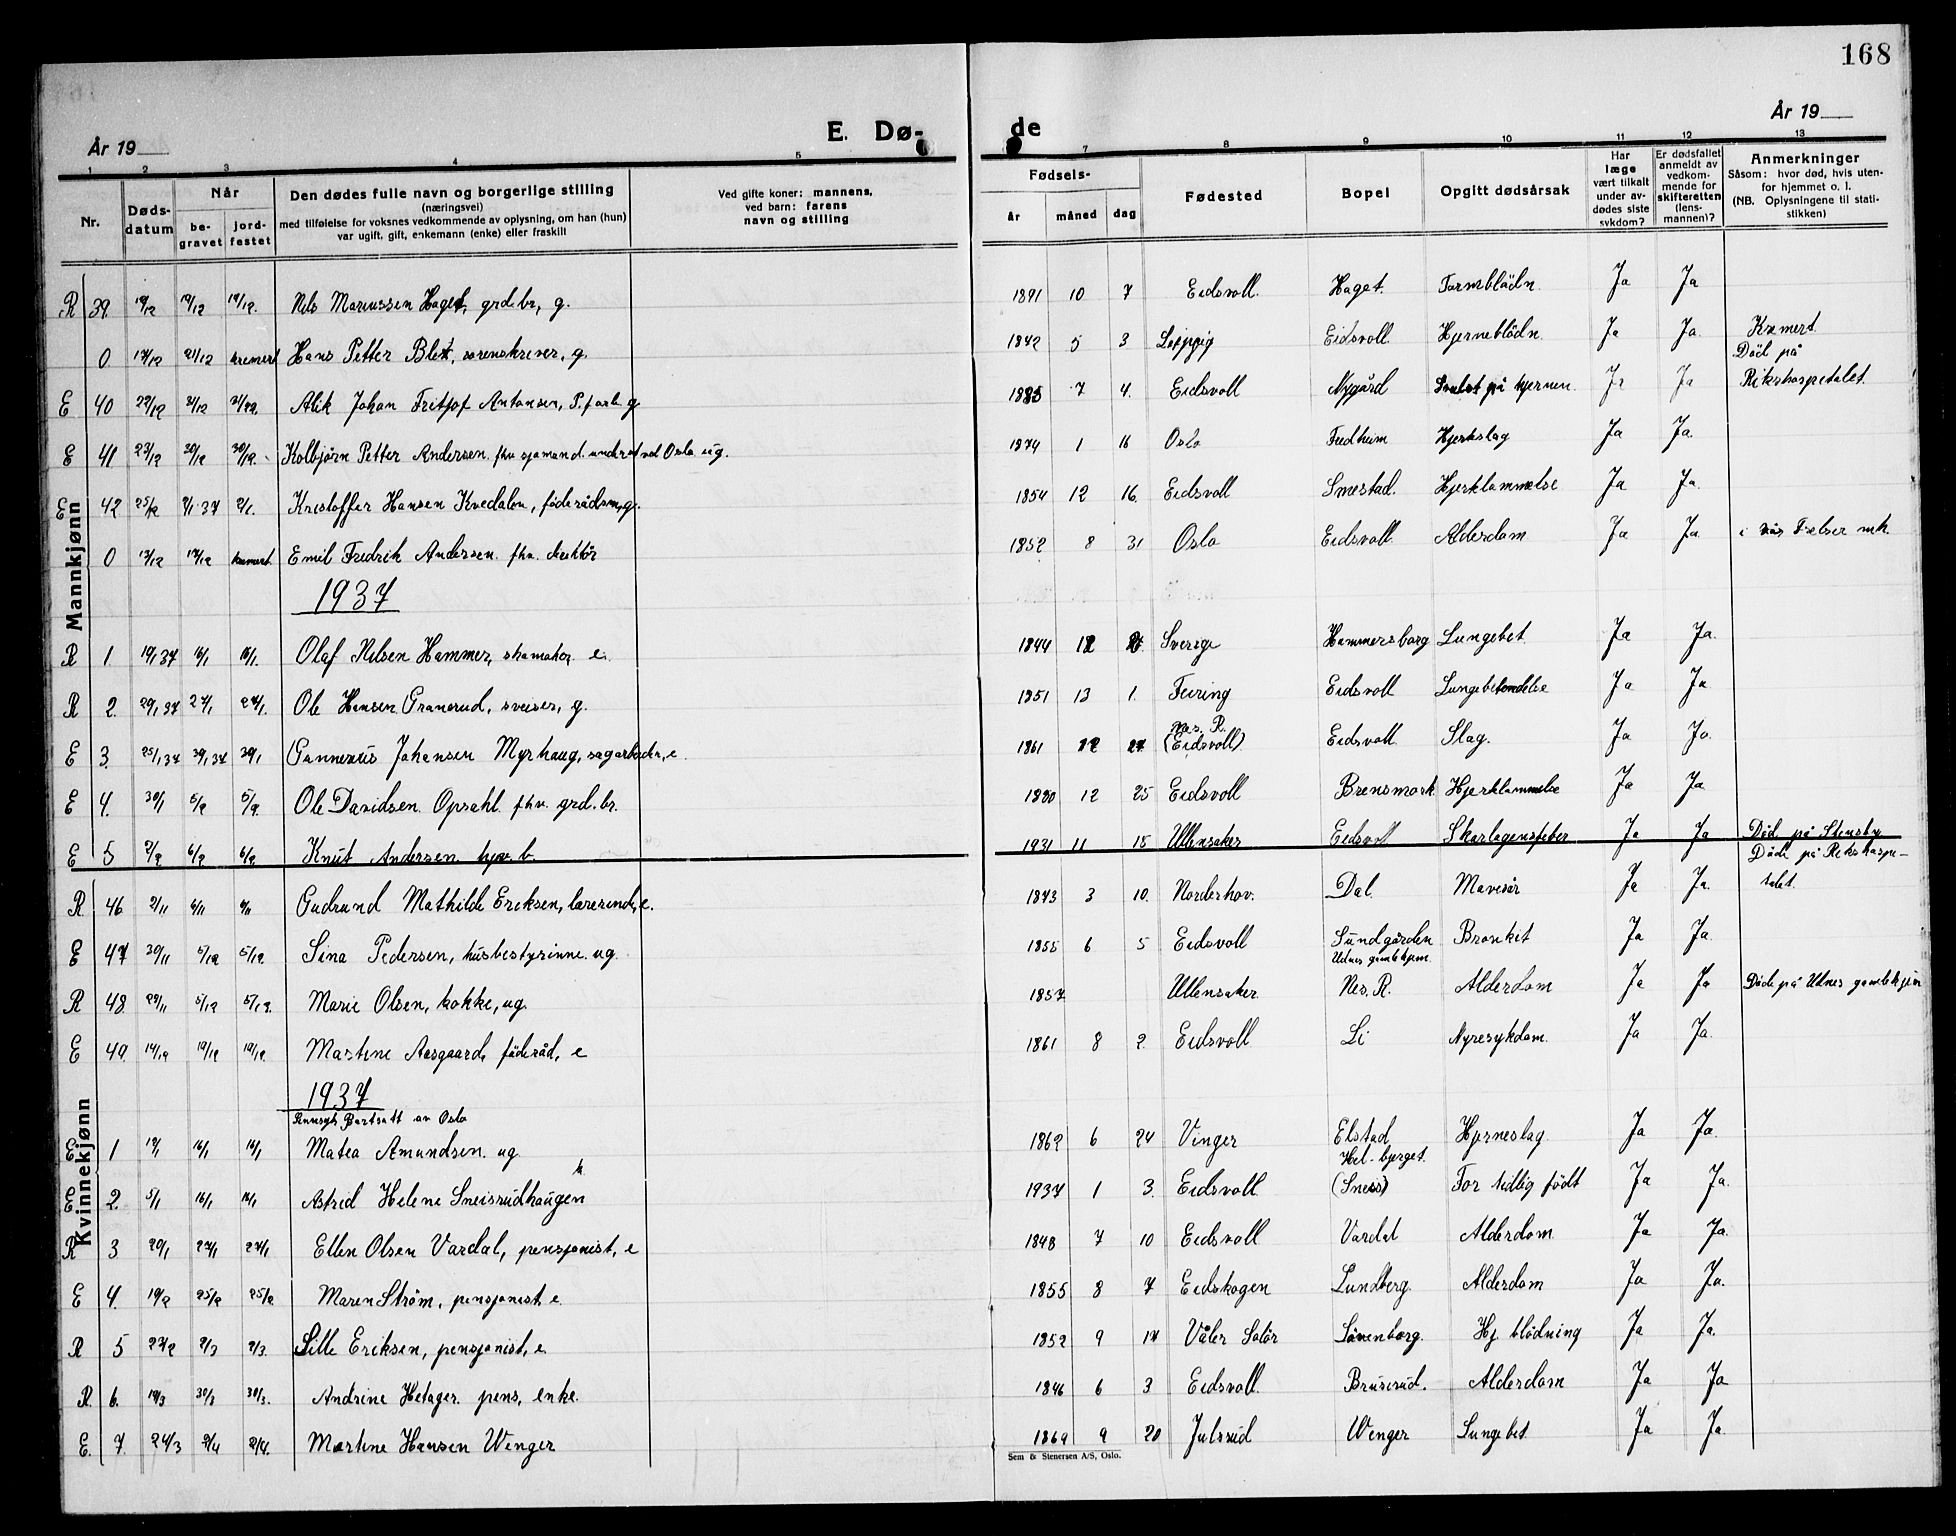 168
År 19
E. Dø-
de
År 19
1 2 3 4 5 7 8 9 10 11 12 13
Nr.
Døds-
datum
Når
be-
gravet
jord-
festet
Den dødes fulle navn og borgerlige stilling
(næringsvei)
med tilføielse for voksnes vedkommende av oplysning, om han (hun)
var ugift, gift, enkemann (enke) eller fraskilt
Ved gifte koner: mannens,
ved barn: farens
navn og stilling
Fødsels-
år måned dag
Fødested
Bopel
Opgitt dødsårsak
Har
læge
vært tilkalt
under av-
dødes siste
sykdom?
Er dødsfallet
anmeldt av
vedkom-
mende for
skifteretten
(lens-
mannen)?
Anmerkninger
Såsom: hvor død, hvis uten-
for hjemmet o. l.
(NB. Oplysningene til stati-
stikken)
Mannkjønn
R 39. 19/12 19/12 Nils Mariussen Haget, grd.br, g. 1891 10 7 Eidsvoll. Haget. Ja Ja
0 17/12 21/12 kremert Hans Petter sorenskriver, g. 1842 5 3 Leipzig Eidsvoll Hjerneblödn. Ja Ja. Kremert.
Död på
E 40 Alik Johan Fritjof Antonsen, g 1885 7 4. Eidsvoll Nygård på hjernen. Ja Ja Rikshospitalet.
E 41 23/12 30/12 30/12. Kolbjørn Petter Andersen. fhv. sjømand. Oslo ug. 1874 1 16 Oslo Fredheim Hjerteslag Ja Ja.
E 42 25/12 2/1 37 2/1. Kristoffer Hansen Kvedalen, föderådsm, g. 1854 12 16. Eidsvoll Smestad. Hjerklammelse Ja Ja.
0 kremert. Emil Fredrik Andersen. fhv. direktör 1852 8 31 Oslo Eidsvoll Alderdom Ja Ja. i vår Frelser mh.
1937
R 1 16/1 Olaf Nilsen Hammer, skomaker e. 1844 12 Sverige Hammersborg Lungebet. Ja Ja.
R 2. 27/1 27/1. Ole Hansen Granerud, sveiser, g. 1851 13 1. Feiring Eidsvoll Lungebetendelse Ja Ja
Nes. R.
E 3. 25/1 37 30/1 37 30/1 Gunnerius Johansen Myrhaug, sagarbeider, e. 1861 12 27 (Eidsvoll) Eidsvoll Slag. Ja Ja.
E 4. 30/1 5/2 5/2. Ole Davidsen Opsahl fhv. grd.br. 1880 12 25 Eidsvoll Brensmork Hjerklammelse Ja Ja
E 5 2/2 6/2 6/2 Knut Andersen b. 1931 11 15 Ullensaker Eidsvoll Skarlagensfeber Ja Ja Död på Stensby
Döde på Rikshospi-
R 46 2/11 6/11 Gudrund Mathilde Eriksen, lærerinde, e. 1873 3 10. Norderhov. Dal Mavesår Ja Ja. talet.
E 47 30/11 5/12 5/12. Sina Pedersen, husbestyrinne. ug. 1855 6 5 Eidsvoll Sundgården Bronkit Ja Ja.
Udnes gamlehjem
R 48. 29/11 5/12 5/12. Marie Olsen, kokke, ug. 1857 Ullensaker. Nes. R. Alderdom Ja Ja Döde på Udnes gamlehjem
E 49 14/12 19/12 19/12. Martine Aasgaard, föderåd, e 1861 8 2. Eidsvoll Li Nyresykdom. Ja Ja.
Kvinnekjønn
1937
Bortsatt av Oslo
E 1 16/1 16/1 Matea Amundsen. ug. 1862 6 24 Vinger Elstad Hjerneslag. Ja Ja.
Hel-bjerget.
E 2. 5/1 16/1 16/1 Astrid Helene Sneisrudhaugen 1937 1 3. Eidsvoll. For tidlig født Ja Ja.
R 3 20/1 27/1 27/1. Ellen Olsen Vardal, pensjonist, e 1848 7 10 Eidsvoll Vardal Alderdom. Ja Ja.
E 4. 19/2 25/2 25/2 Maren Ström, pensjonist, e. 1855 8 7 Eidskogen Lundberg. Alderdom Ja Ja.
R 5 27/2 2/3 2/3. Sille Eriksen, pensjonist, e 1852 9 17 Våler Solör Hj. blödning Ja Ja.
R. 6. 19/3 30/3 30/3. Andrine Hetager pens, enke. 1846 6 3 Eidsvoll. Brusrud. Alderdom Ja Ja
E. 7. 24/3 2/4 2/4. Martine Hansen Wenger 1869 9 20 Julsrud Wenger Lungebet Ja Ja.
Sem & Stenersen A/S, Oslo.